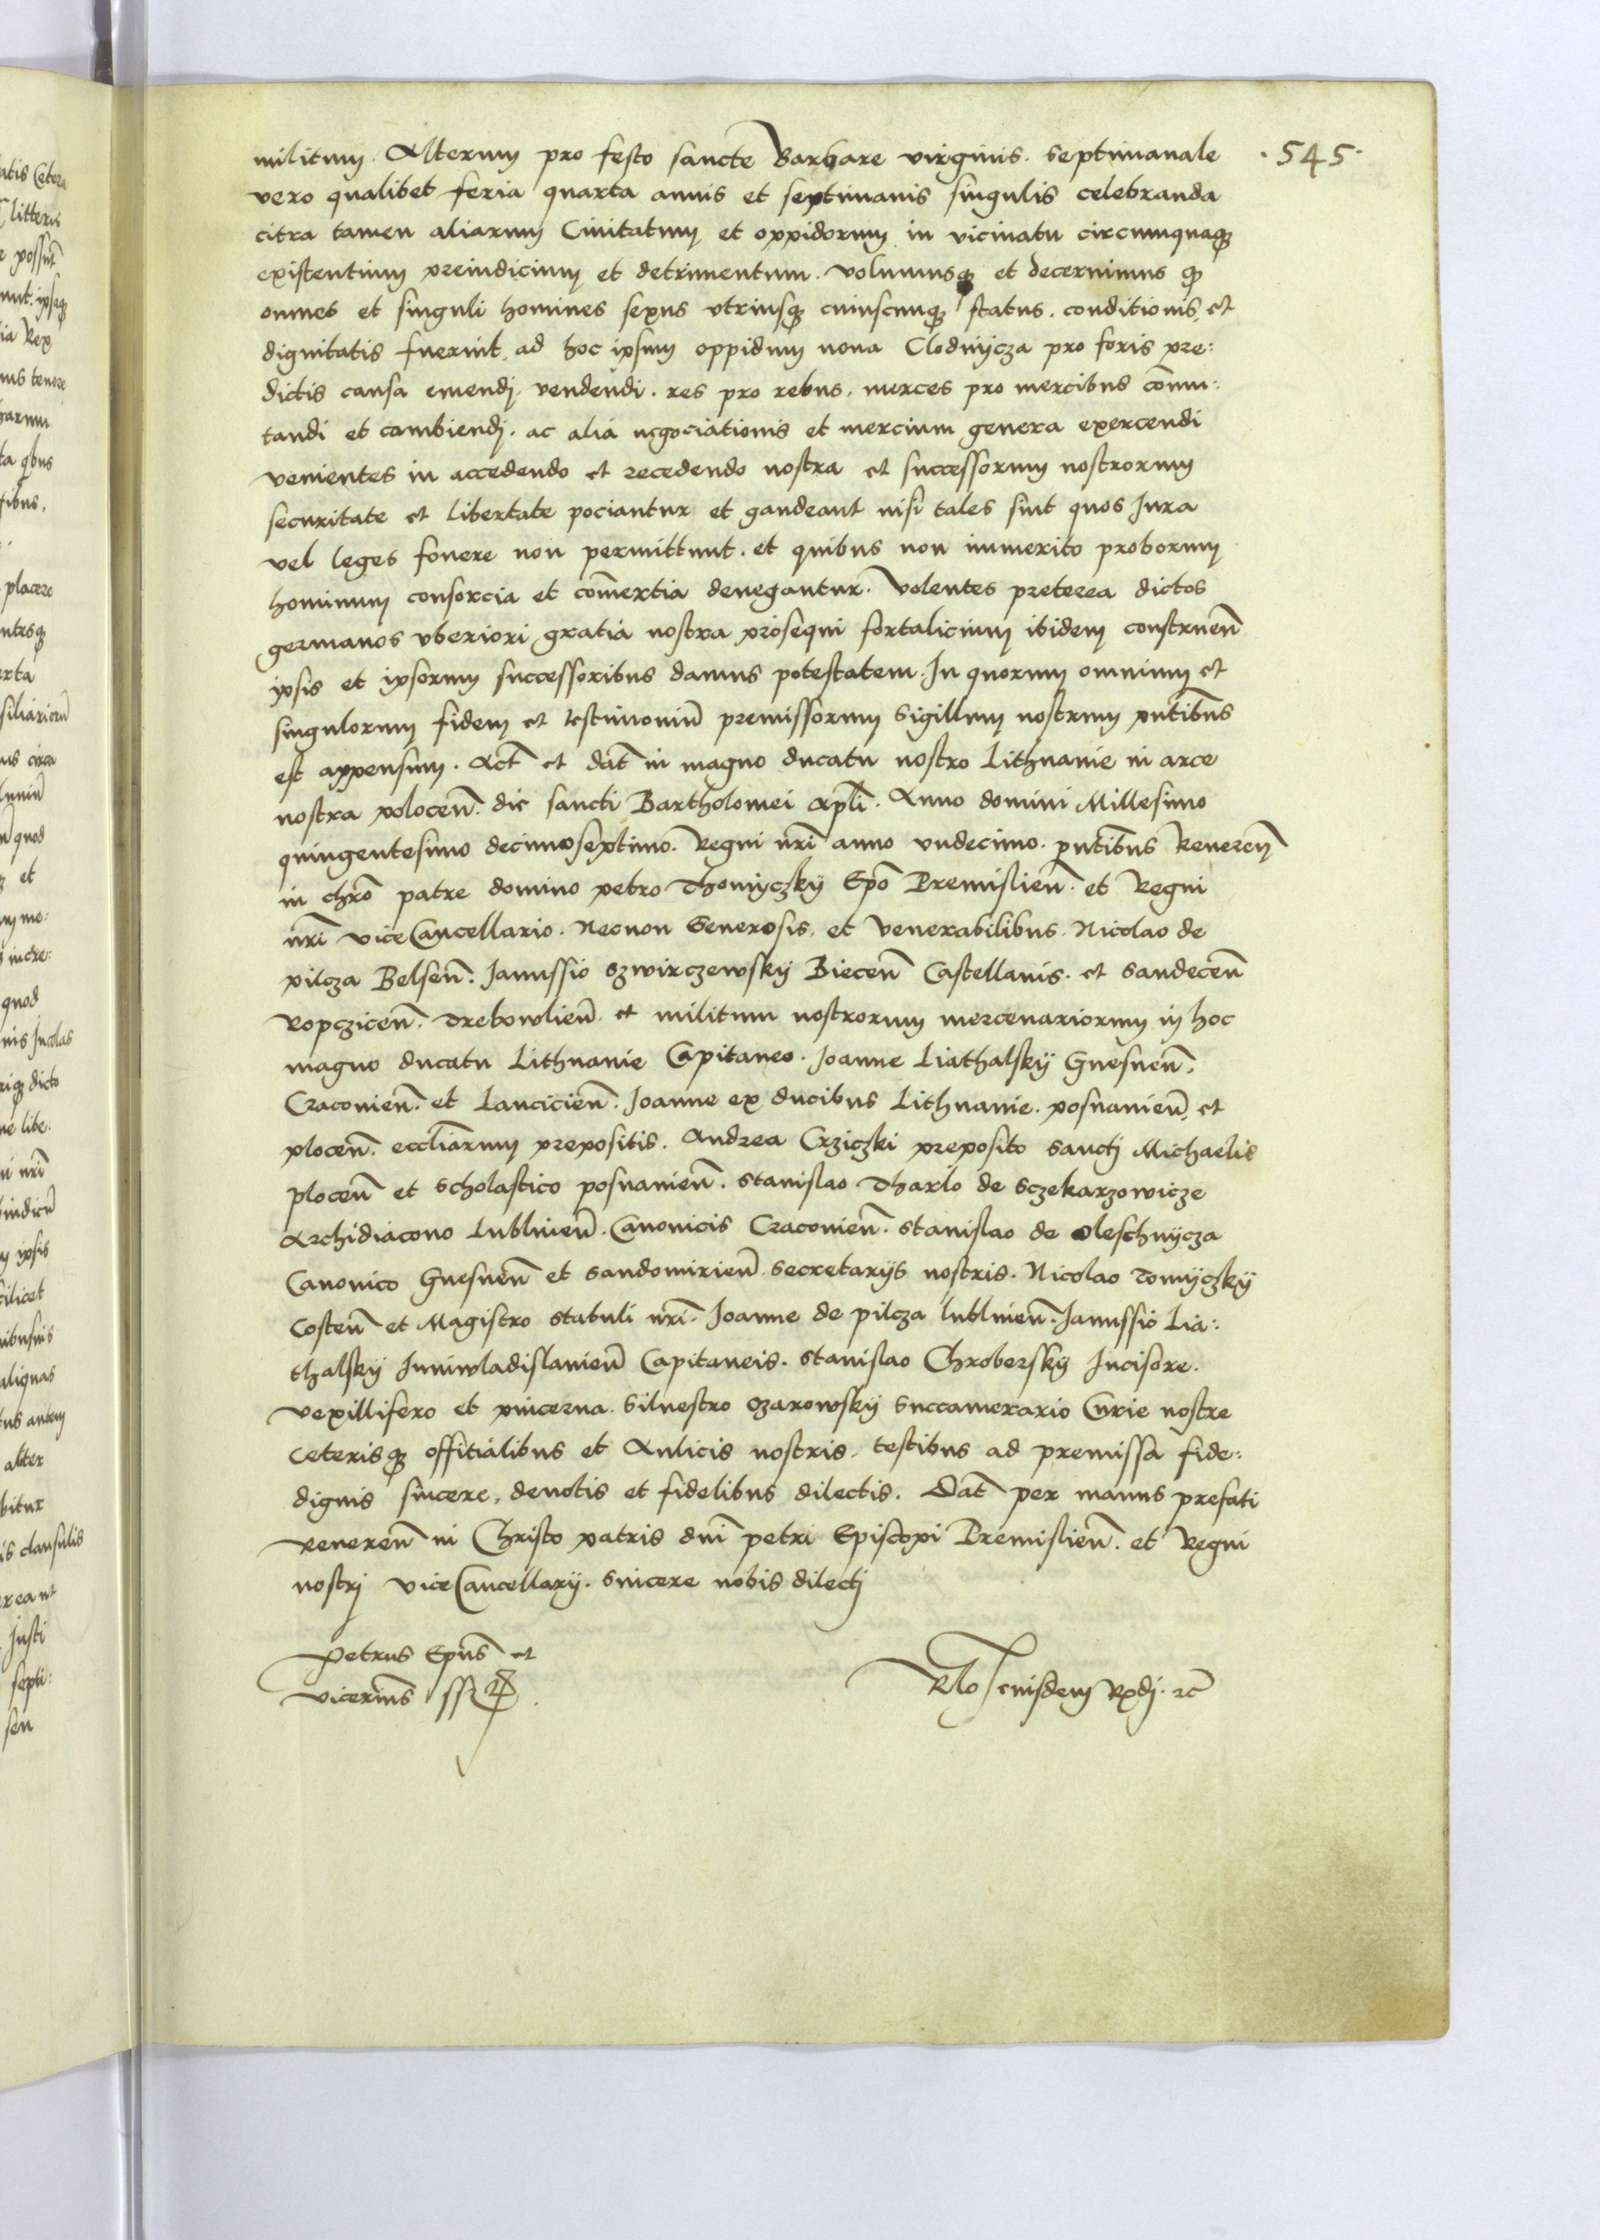 ·545·
militum. Alterum pro festo sancte Barbare virginis. Septimanale
vero qualibet feria quarta annis et septimanis singulis celebranda
citra tamen aliarum Ciuitatum et oppidorum in vicinatu circumquaqꝫ
existentium preiudicium et detrimentum. Volumusqꝫ et decernimus qꝫ
omnes et singuli homines sexus vtriusqꝫ cuiuscunqꝫ status. conditionis, et
dignitatis fuerint, ad hoc ipsum oppidum noua Clodnycza pro foris pre:
dictis causa emendj. vendendi. res pro rebus. merces pro mercibus com̄u:
tandi et cambiendj. ac alia negociationis et mercium genera exercendi
venientes in accedendo et recedendo nostra et successorum nostrorum
securitate et libertate pociantur et gaudeant nisi tales sint quos Jura
vel leges fouere non permittunt. et quibus non immerito proborum
hominum consorcia et com̄ertia denegantur. Volentes preterea dictos
germanos vberiori gratia nostra prosequi fortalicium ibidem construen̄
ipsis et ipsorum successoribus damus potestatem. In quorum omnium et
singulorum fidem et testimoniū premissorum Sigillum nostrum pn̄tibus
est appensum. Act̄ et dat̄ in magno ducatu nostro Lithuanie in arce
nostra polocen̄. die sancti Bartholomei apl̄i. Anno domini Millesimo
quingentesimo decimoseptimo. Regni nr̄i anno vndecimo. pn̄tibus Reueren̄
in chr̄o patre domino petro Thomyczky Ep̄o Premislien̄. et Regni
nr̄i viceCancellario. Necnon Generosis, et Venerabilibus. Nicolao de
pilcza Belsen̄. Janussio Szwirczewsky Biecen̄ Castellanis. et Sandecen̄
Ropczicen̄. Trebowlien̄. et militum nostrorum mercenariorum in hoc
magno ducatu Lithuanie Capitaneo. Joanne Liathalsky Gnesnen̄.
Cracouien̄. et Lancicien̄. Joanne ex ducibus Lithuanie. posnanien̄, et
plocen̄. eccl̄iarum prepositis. Andrea Crziczki preposito Sanctj Michaelis
plocen̄ et Scholastico posnanien̄. Stanislao Tharlo de Sczekarzowicze
Archidiacono Lublinen̄. Canonicis Cracouien̄. Stanislao de Oleschnycza
Canonico Gnesnen̄ et Sandomirien̄. Secretarys nostris. Nicolao Tomyczky
Costen̄ et Magistro Stabuli nr̄i. Joanne de pilcza lublinen̄. Janussio Lia:
thalsky Juniwladislauien̄ Capitaneis. Stanislao Chrobersky Incisore.
Vexillifero et pincerna. Siluestro Ozarowsky Succamerario Curie nostre
Ceterisqꝫ offitialibus et Aulicis nostris, testibus ad premissa fide:
dignis sincere, deuotis et fidelibus dilectis. Dat̄ per manus prefati
Reueren̄ in Christo patris dn̄i petri Episcopi Premislien̄. et Regni
nostrj viceCancellarij. Sincere nobis dilectj
Petrus Ep̄us et
vice
eiusdem